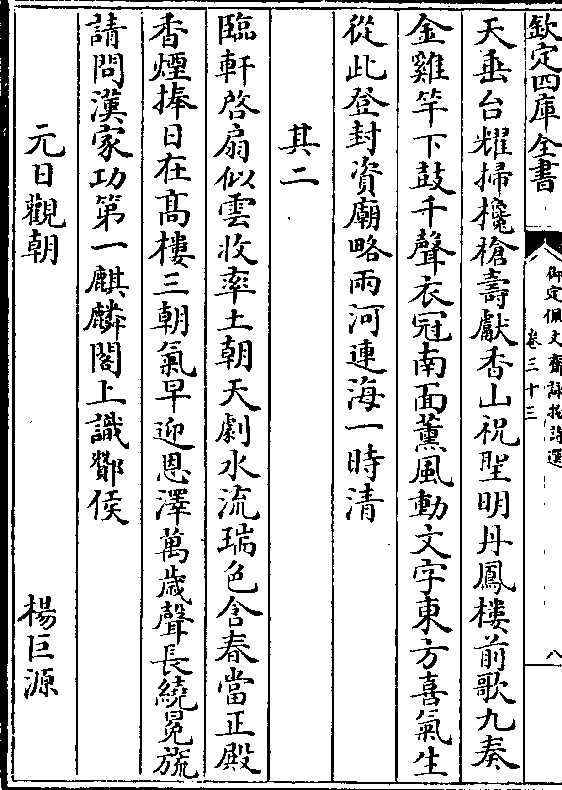 欽定四庫全書
御定佩文齋詠物詩選
卷三十三
八
天垂台耀掃欃槍壽獻香山祝聖明丹鳳樓前歌九奏
金雞竿下鼓千聲衣冠南面薰風動文字東方喜氣生
從此登封資廟略兩河連海一時清
其二
臨軒啓扇似雲收率土朝天劇水流瑞色含春當正殿
香煙捧日在高樓三朝氣早迎恩澤萬歲聲長繞冕旒
請問漢家功第一麒麟閣上識酇侯
元日觀朝
楊巨源